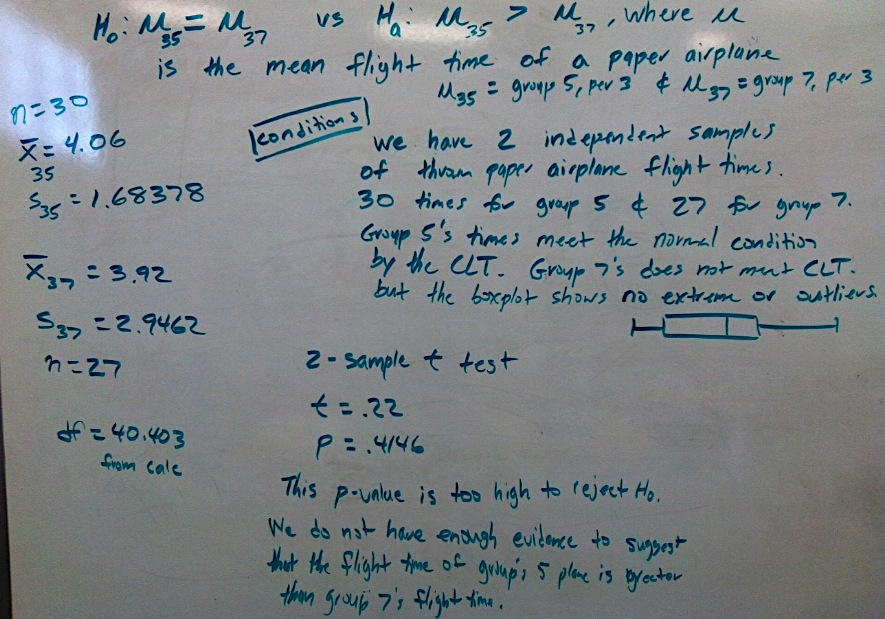 H₀: μ₃₅ = μ₃₇ vs Hₐ: μ₃₅ > μ₃₇, where μ
is the mean flight time of a paper airplane
μ₃₅ = group 5, per 3 & μ₃₇ = group 7, per 3
n=30
x̄₃₅ = 4.06
S₃₅ = 1.68378
x̄₃₇ = 3.92
S₃₇ = 2.9462
n=27
df = 40.403
from calc
conditions
We have 2 independent samples
of thrown paper airplane flight times.
30 times for group 5 & 27 for group 7.
Group 5's times meet the normal condition
by the CLT. Group 7's does not meet CLT.
but the boxplot shows no extreme or outliers.
2-sample t test
t = .22
P = .4146
This p-value is too high to reject H₀.
We do not have enough evidence to suggest
that the flight time of group's 5 plane is greater
than group 7's flight time.